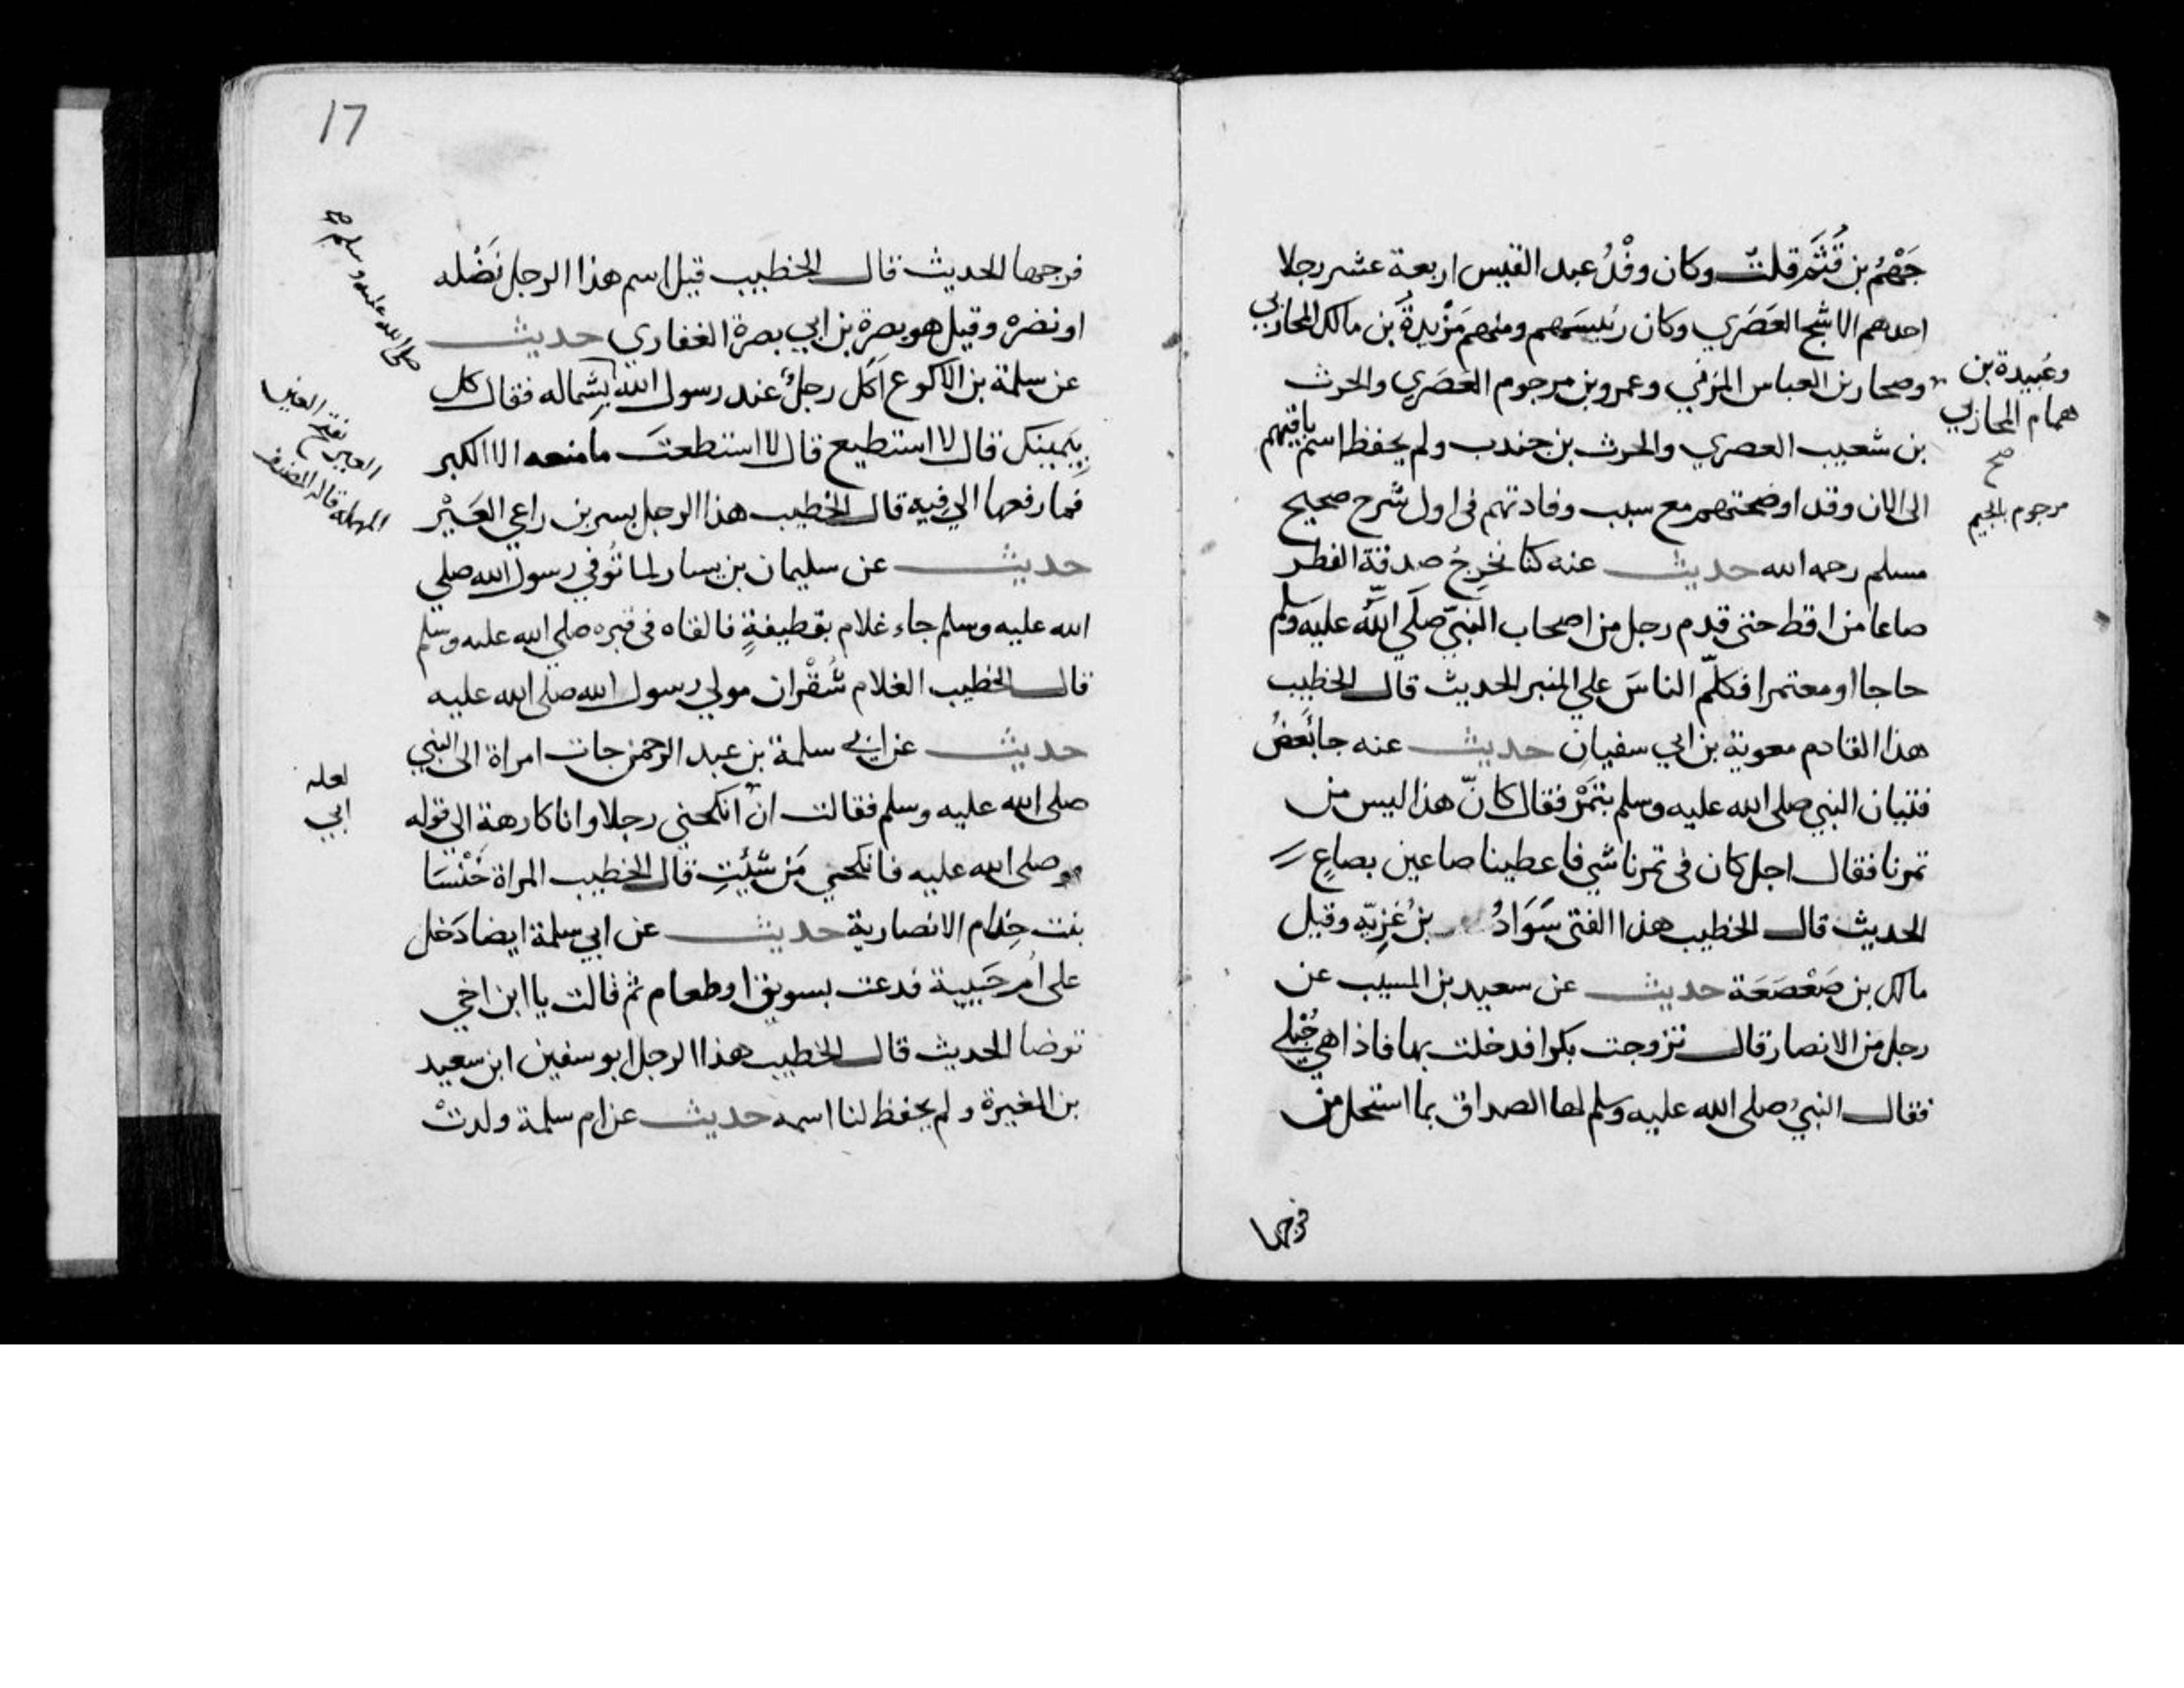 جَهْمُ بن قُثَم قلت وكان وفْدُ عبد القيس اربعة عشر رجلا
احدهم الاشج العَصَري وكان رئيسَهم ومنهم مَزْيدةُ بن مالك المحاربي
وصحار بن العباس المزني وعمرو بن مرجوم العَصَري والحرث
بن شعيب العصري والحرث بن جندب ولم يحفظ اسم باقيهم
الى الان وقد اوضحتهم مع سبب وفادتهم في اول شرح صحيح
مسلم رحمه الله حديث عنه كنا نخرِجُ صدقة الفطر
صاعا من اقط حتى قدم رجل من اصحاب النبيّ صلَي اللّٰه عليه وسلم
حاجا او معتمرا فكلّم الناسَ علي المنبر الحديث قال الخطيب
هذا القادم معوية بن ابي سفيان حديث عنه جا بَعضُ
فتيان النبي صلى الله عليه وسلم بتَمْر فقال كانّ هذا ليس من
تمرنا فقال اجل كان في تمرنا شي فاعطينا صاعين بصاعٍ
الحديث قال الخطيب هذا الفتى سَوَادُ بنُ غزِيّه وقيل
مالك بن صَعْصَعَة حديث عن سعيد بن المسيب عن
رجل من الانصار قال تزوجت بكرا فدخلت بها فاذا هي حُبْلي
فقال النبيُ صلى الله عليه وسلم لها الصداق بما استحل من
وعُبيدة بن
همام المحاربي
صح
مرجوم بالجيم
فرجها
17
فرجها الحديث قال الخطيب قيل اسم هذا الرجل نَضْله
او نضره وقيل هو بصرة بن ابي بصرة الغفاري حديث
عن سلمة بن الاكوع اكَل رجلٌ عند رسول الله بشماله فقال كل
بِيَمينك قال لا استطيع قال لا استطعتَ ما منعه الا الكبر
فما رفعها الي فِيه قال الخطيب هذا الرجل بسر بن راعي العَيْر
حديث عن سليمان بن يسار لما تُوفي رسول الله صلي
الله عليه وسلم جاء غلام بقطيفةٍ فالقاه في قبره صلي الله عليه وسلم
قال الخطيب الغلام شُقْران مولي رسول الله صلى الله عليه
حديث عن ابي سلمة بن عبد الرحمن جات امراة الى النبي
صلى الله عليه وسلم فقالت انّ انكحني رجلا وانا كارهة الي قوله
صلى الله عليه فانكحي مَن شئتِ قال الخطيب المراة خَنْسَا
بنت خِذام الانصارية حديث عن ابي سلمة ايضا دَخل
على ام حَبيبة فدعت بسويق او طعام ثم قالت يا ابن اخي
توضا الحديث قال الخطيب هذا الرجل ابو سفين ابن سعيد
بن المغيرة ولم يحفظ لنا اسمه حديث عن ام سلمة ولدتْ
صلى الله عليه وسلم صح
العير بفتح العين
المهملة قاله المصنف
لعله
ابي